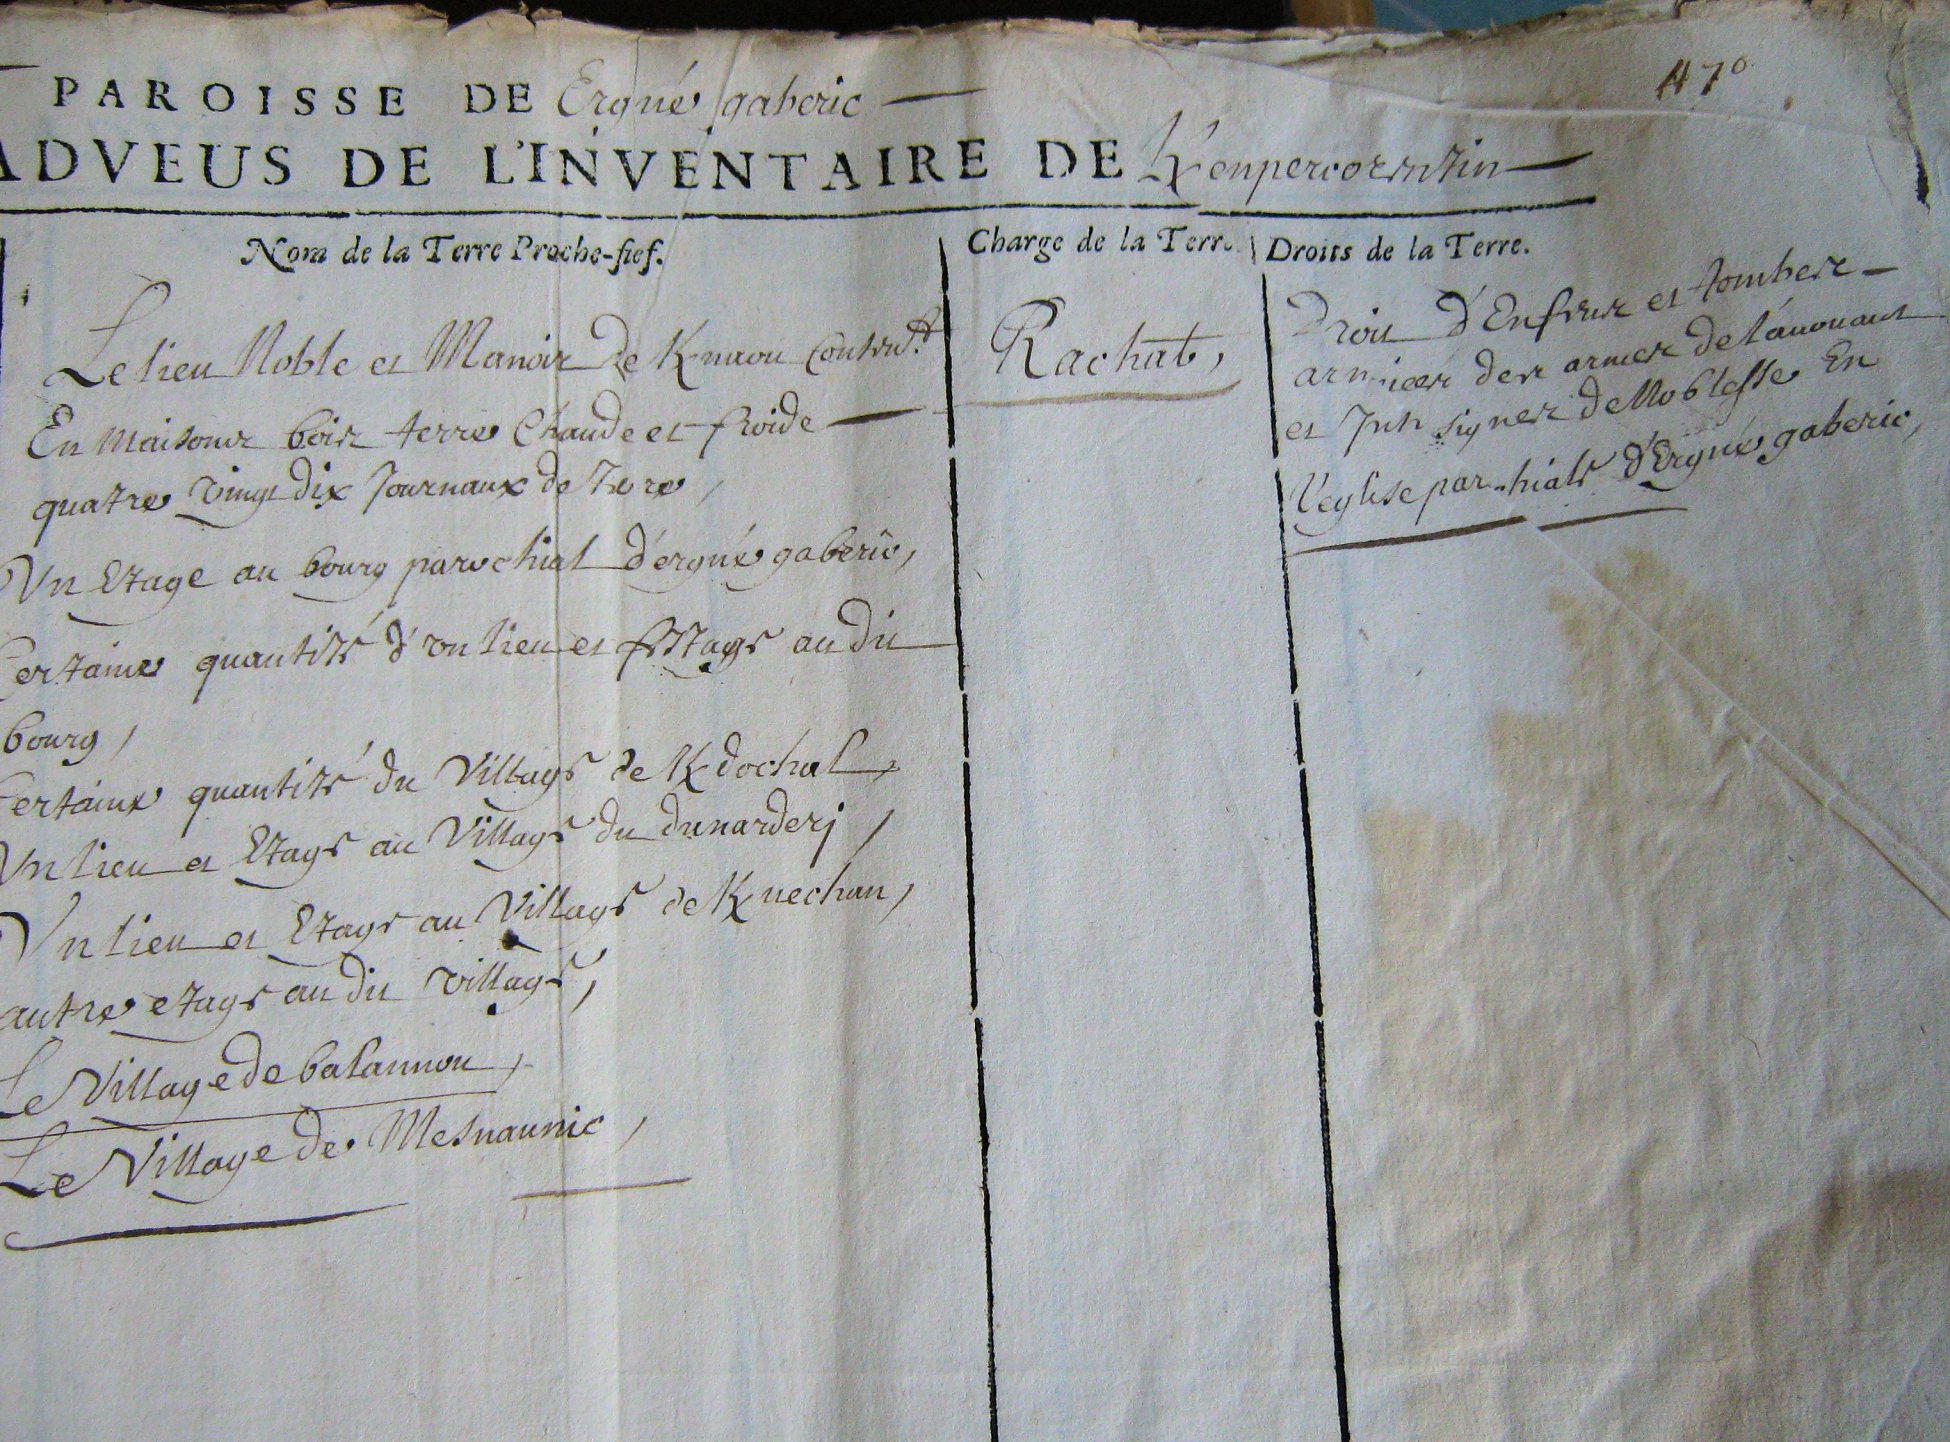 470
PAROISSE DE Ergué gaberic
ADVEUS DE L'INVENTAIRE DE Kempercorentin
Nom de la Terre Proche-fief.
Le lieu Noble et Manoir De Knaou Conten.t
En Maisons bois terre Chaude et froide
quatre vingt dix Journaux de Terre,
Un Etage au bourg parochial d'ergué gaberic,
Certaine quantité d'un lieu et Estage au dit
bourg,
Certaine quantité du Village de Kdochal,
Un lieu et Etage au Village du dunarderj,
Un lieu et Etage au Village de Knechan,
autre etage au dit village,
Le Village de balannou,
Le Village de Mesnaunic,
Charge de la Terre
Rachat,
Droits de la Terre.
Droit d'Enfeux et tombes
armiées des armes de l'auouant
et signes de Noblesse En
l'eglise parochiale d'Ergué gaberic,